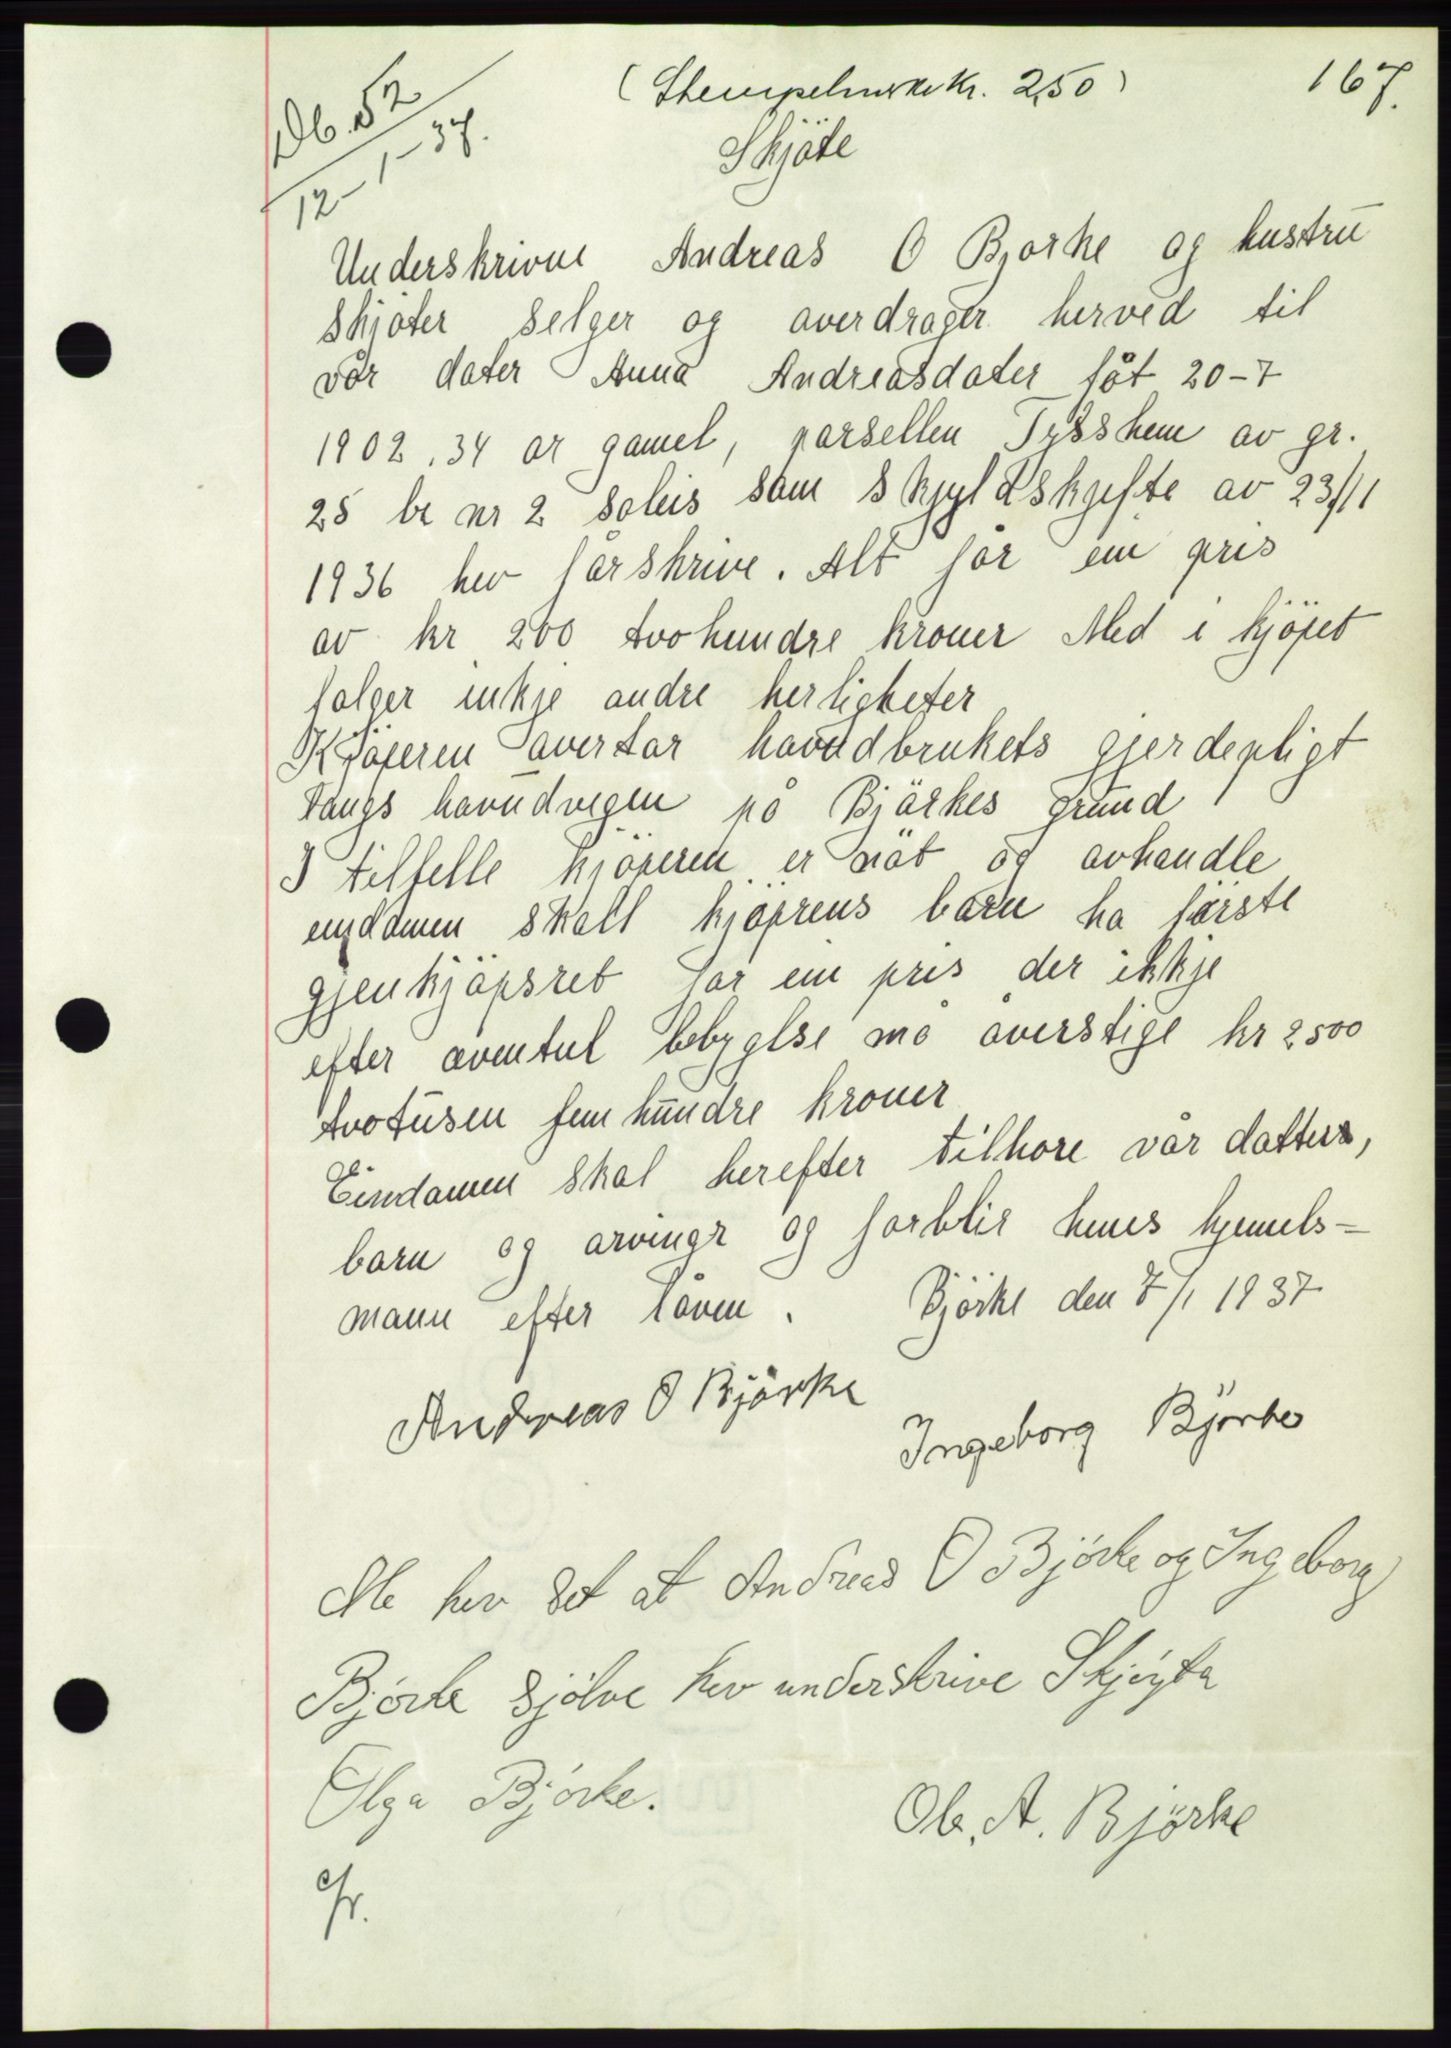 Db. 52
12-1-37.
(Stempelmerke kr. 2,50)
167.
Skjöte
Underskrivne Andreas O Bjorke og hustru
skjøter selger og averdrager herved til
vår dater Anna Andreasdater föt 20-7
1902. 34 år gamel, parsellen Tyssheim av gr.
25 br nr 2 soleis som skjyldskjefte av 23/11
1936 hev förskrive. Alt för ein pris
av kr 200 tvohundre kroner Med i kjöpet
følger inkje andre herligheter
Kjöperen overtar havudbrukets gjerdepligt
langs havudvegen på Björkes grund
I tilfelle kjöperen er nöt og avhandle
eindomen skall kjöprens barn ha förste
gjenkjöpsret för ein pris der ikkje
efter aventul bebyglse må överstige kr 2500
tvotusen femhundre kroner
Eindomen skal herefter tilhore vår datters,
barn og arvingr og forblir henes hjemels-
mann efter låven. Björke den 7/1 1937
Andreas O Björke
Ingeborg Björke
Me hev set at Andreas O Björke og Ingeborg
Björke sjölve hev underskrive Skjöyta
Olga Björke.
Ole. A. Björke